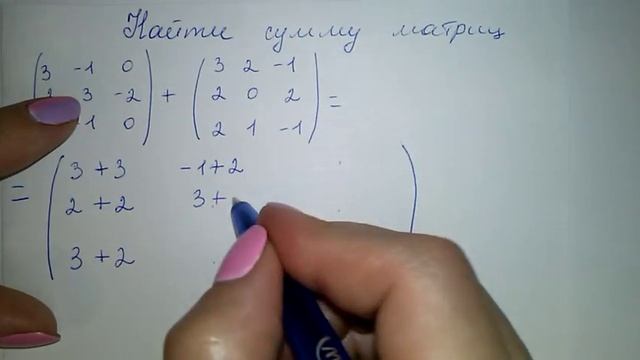 Найти сумму матриц
3 -1 0 3 2 -1
3 -2 + 2 0 2 =
1 0 2 1 -1
= 3 + 3 -1 + 2
2 + 2 3 +
3 + 2